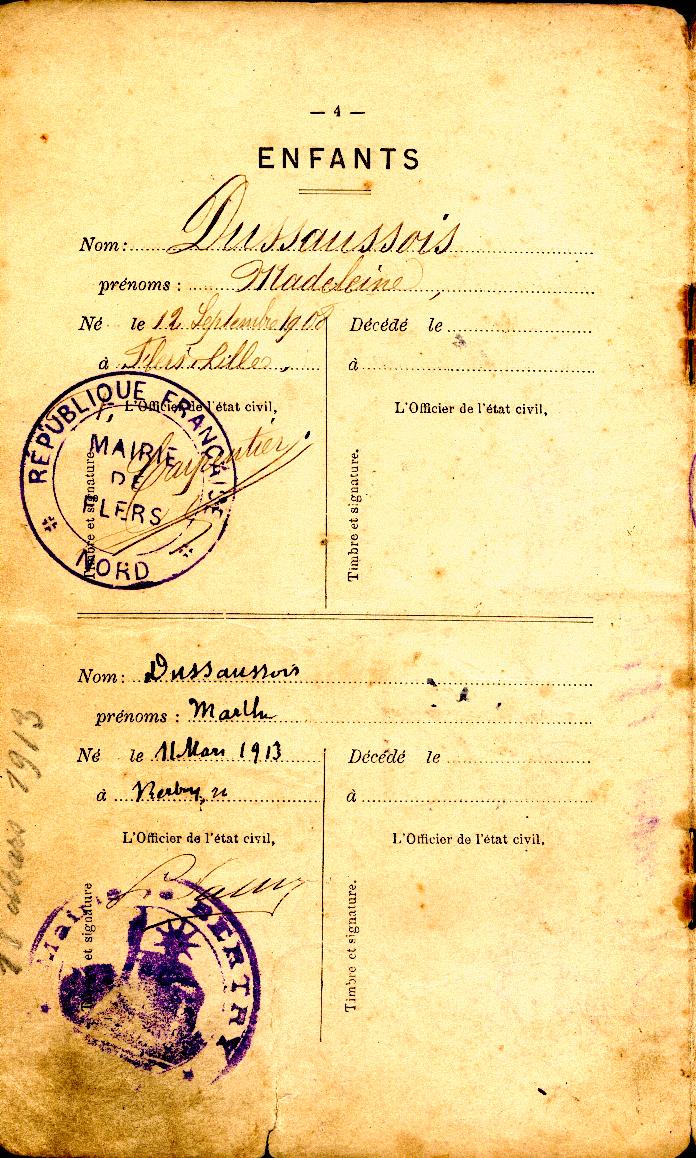 — 4 —
ENFANTS
Nom: Dussaussois
prénoms : Madeleine,
Né le 12 Septembre 1908
à Flers
Décédé le
à
L'Officier de l'état civil,
Carpentier
Timbre et signature.
RÉPUBLIQUE FRANÇAISE
MAIRIE
DE
FLERS
NORD
L'Officier de l'état civil,
Timbre et signature.
Nom: Dussaussois
prénoms : Marthe
Né le 11 Mars 1913
à
Décédé le
à
L'Officier de l'état civil,
Timbre et signature
BERTRY
L'Officier de l'état civil,
Timbre et signature.
Mars 1913